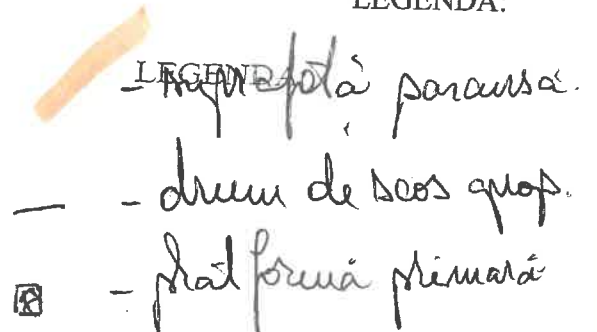 LEGENDA.
LEGENDA
- suprafată parcursă.
- drum de scos aprop.
R - platformă primară